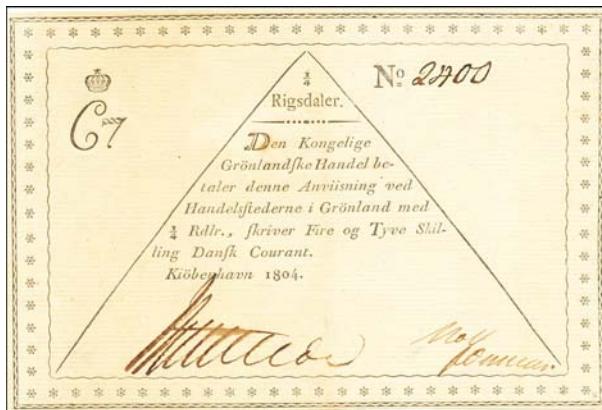 C7
No. 2400
1/4
Rigsdaler.
Den Kongelige
Grönlandſke Handel be-
taler denne Anviisning ved
Handelsſtederne i Grönland med
1/4 Rdlr., ſkriver Fire og Tyve Skil-
ling Danſk Courant.
Kiöbenhavn 1804.